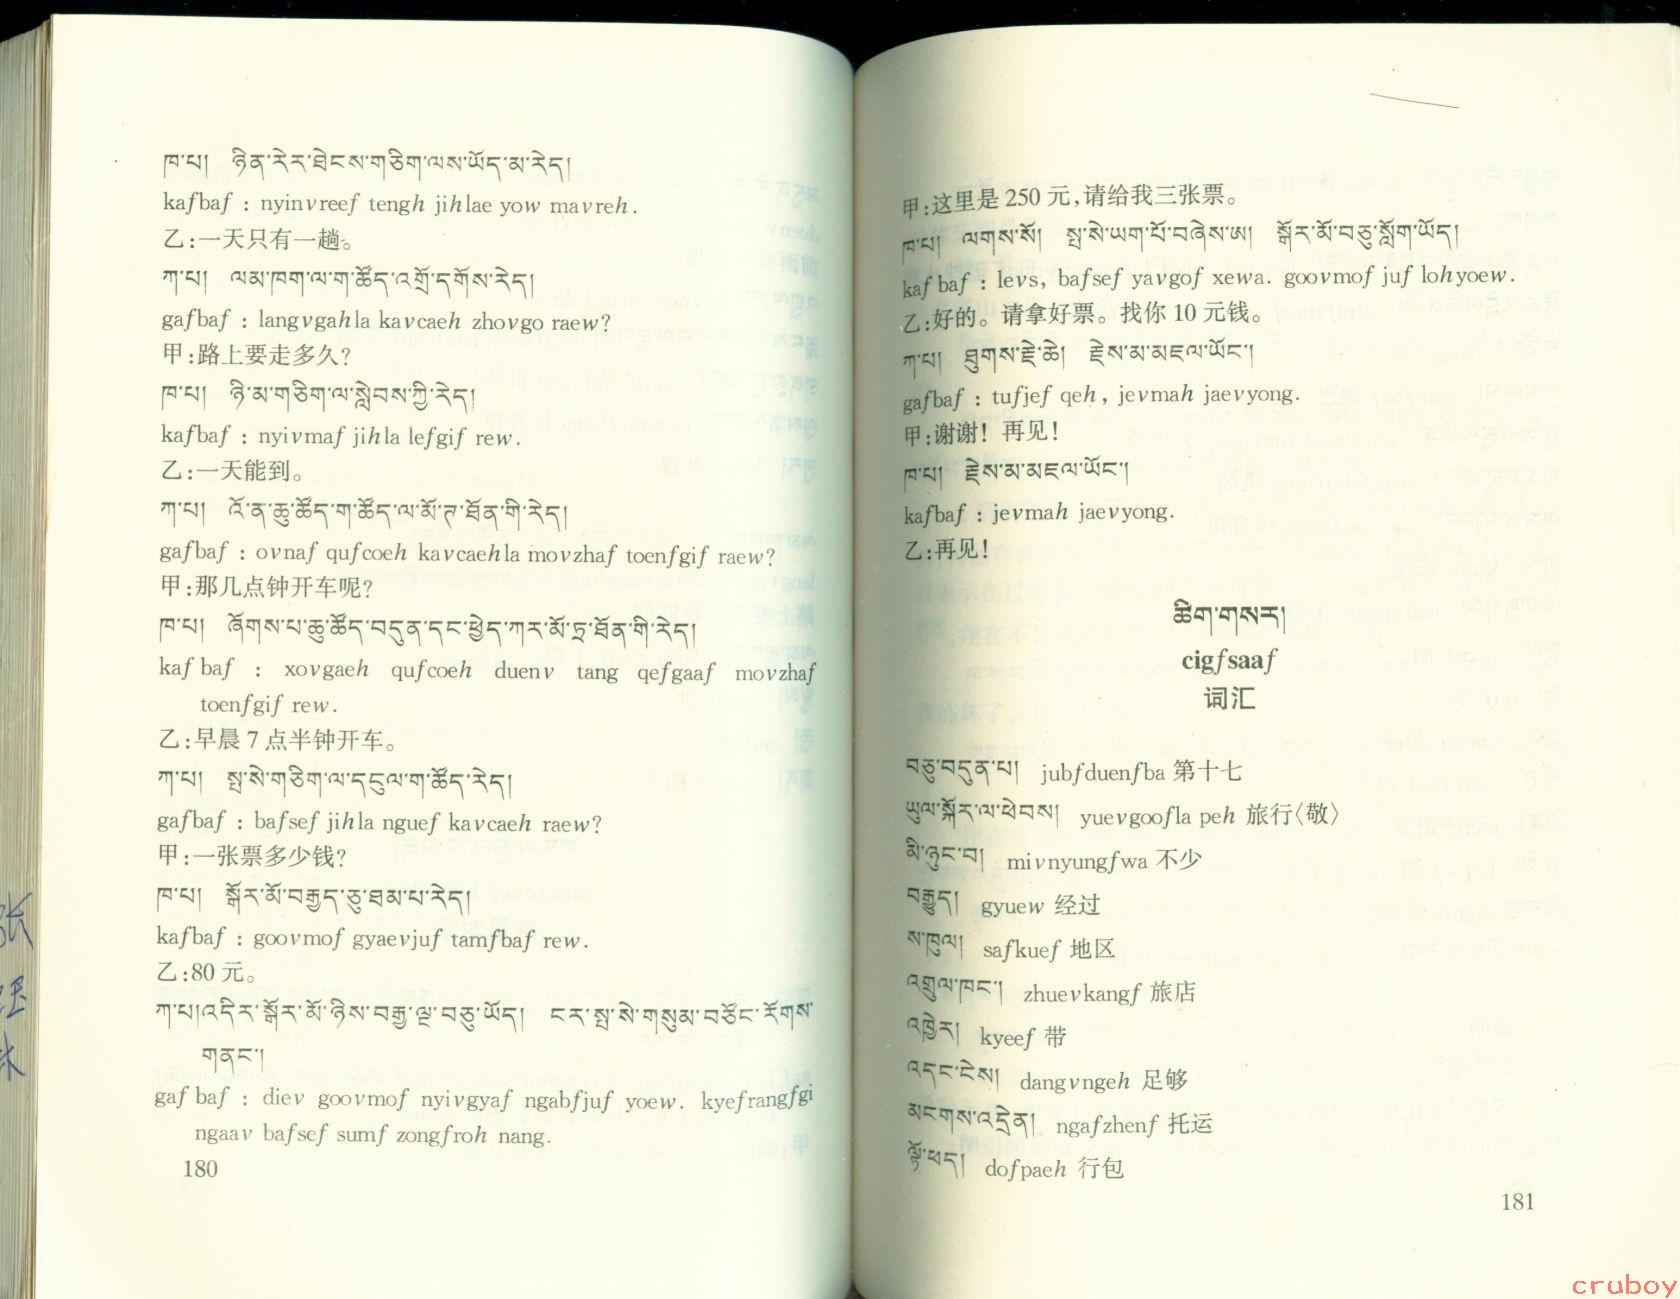 ཁ་པ། ཉིན་རེར་ཐེངས་གཅིག་ལས་ཡོད་མ་རེད།
kafbaf : nyinvreef tengh jihlae yow mavreh.
乙:一天只有一趟。
ཀ་པ། ལམ་ཁག་ལ་ག་ཚོད་འགྲོ་དགོས་རེད།
gafbaf : langvgahla kavcaeh zhovgo raew?
甲:路上要走多久?
ཁ་པ། ཉི་མ་གཅིག་ལ་སླེབས་ཀྱི་རེད།
kafbaf : nyivmaf jihla lefgif rew.
乙:一天能到。
ཀ་པ། འོ་ན་ཆུ་ཚོད་ག་ཚོད་ལ་མོ་ཊ་ཐོན་གི་རེད།
gafbaf : ovnaf qufcoeh kavcaehla movzhaf toenfgif raew?
甲:那几点钟开车呢?
ཁ་པ། ཞོགས་པ་ཆུ་ཚོད་བདུན་དང་ཕྱེད་ཀར་མོ་ཊ་ཐོན་གི་རེད།
kafbaf : xovgaeh qufcoeh duenv tang qefgaaf movzhaf
toenfgif rew.
乙:早晨7点半钟开车。
ཀ་པ། སྤ་སེ་གཅིག་ལ་དངུལ་ག་ཚོད་རེད།
gafbaf : bafsef jihla nguef kavcaeh raew?
甲:一张票多少钱?
ཁ་པ། སྒོར་མོ་བརྒྱད་ཅུ་ཐམ་པ་རེད།
kafbaf : goovmof gyaevjuf tamfbaf rew.
乙:80元。
ཀ་པ།འདིར་སྒོར་མོ་ཉིས་བརྒྱ་ལྔ་བཅུ་ཡོད། ངར་སྤ་སེ་གསུམ་བཙོང་རོགས་
གནང་།
gafbaf : diev goovmof nyivgyaf ngabfjuf yoew. kyefrangfgi
ngaav bafsef sumf zongfroh nang.
180
甲:这里是250元,请给我三张票。
ཁ་པ། ལགས་སོ། སྤ་སེ་ཡག་པོ་བཞེས་ཨ། སྒོར་མོ་བཅུ་སློག་ཡོད།
kafbaf : levs, bafsef yavgof xewa. goovmof juf lohyoew.
乙:好的。请拿好票。找你10元钱。
ཀ་པ། ཐུགས་རྗེ་ཆེ། རྗེས་མ་མཇལ་ཡོང་།
gafbaf : tufjef qeh, jevmah jaevyong.
甲:谢谢! 再见!
ཁ་པ། རྗེས་མ་མཇལ་ཡོང་།
kafbaf : jevmah jaevyong.
乙:再见!
ཚིག་གསར།
cigfsaaf
词汇
བཅུ་བདུན་པ། jubfduenfba 第十七
ཡུལ་སྐོར་ལ་ཕེབས། yuevgoofla peh 旅行〈敬〉
མི་ཉུང་བ། mivnyungfwa 不少
བརྒྱུད། gyuew 经过
ས་ཁུལ། safkuef 地区
འགྲུལ་ཁང་། zhuevkangf 旅店
འཁྱེར། kyeef 带
འདང་ངེས། dangvngeh 足够
མངགས་འདྲེན། ngafzhenf 托运
ལྟོ་ཕད། dofpaeh 行包
181
cruboy